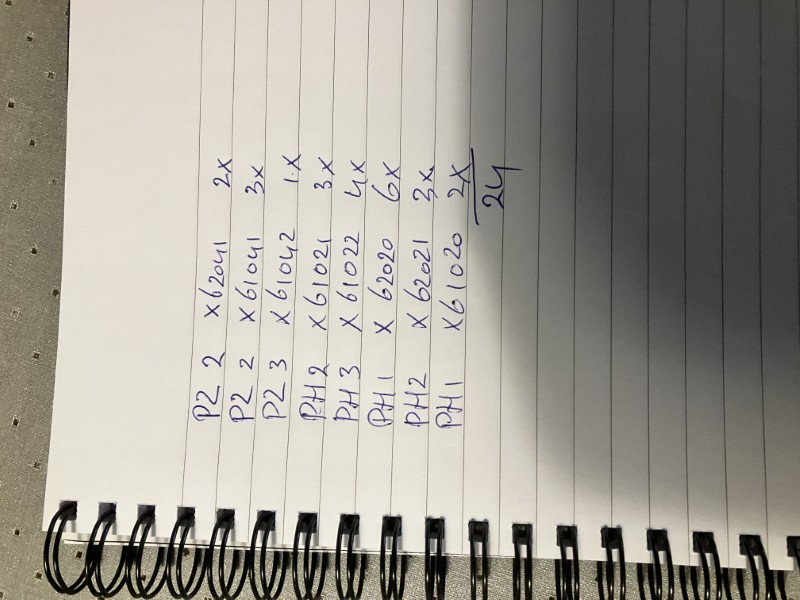 PZ 2 X62041 2X
PZ 2 X61041 3X
PZ 3 X61042 1X
PH2 X61021 3X
PH3 X61022 4X
PH1 X62020 6X
PH2 X62021 3X
PH1 X61020 2X
24